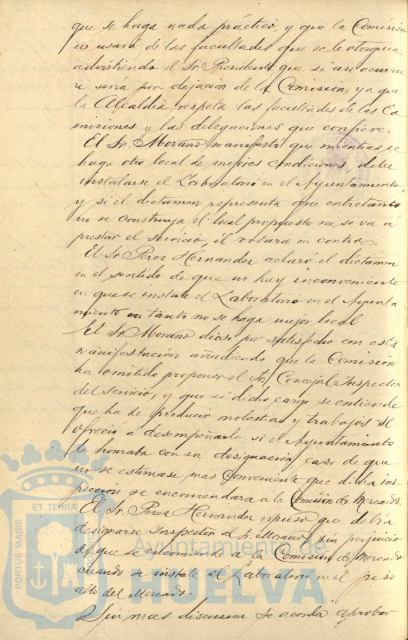 que se haga nada práctico, y que la Comisión
no usará de las facultades que se le otorguen
advirtiendo el Sr. Presidente que si así ocurrie
re sería por dejación de la Comisión, ya que
la Alcaldía respeta las facultades de las Co
misiones y las delegaciones que confiere.
El Sr. Morano manifestó que mientras se
haga otro local de mejores condiciones, debe
instalarse el Laboratorio en el Ayuntamiento,
y si el dictamen representa que entretanto
no se construya el local propuesto no se va a
prestar el servicio, él votará en contra.
El Sr. Perez Hernandez aclaró el dictamen
en el sentido de que no hay inconveniente
en que se instale el Laboratorio en el Ayunta
miento en tanto no se haga mejor local
El Sr. Morano dióse por satisfecho con esta
manifestación añadiendo que la Comisión
ha omitido proponer el Sr. Concejal Inspector
del servicio, y que si dicho cargo se entiende
que ha de producir molestias y trabajos se
ofrecía a desempeñarlo si el Ayuntamiento
le honraba con su designación, caso de que
no se estimase mas conveniente que dicha ins
pección se encomendara a la Comisión de Mercados.
El Sr. Perez Hernandez expuso que debía
designarse Inspector al Sr. Morano, sin perjuicio
de que se encomiende a la Comisión de Mercados
cuando se instale el Laboratorio en el piso
alto del Mercado.
Sin mas discusion se acordó aprobar
PORTUS MARIS ET TERRAE
Ayuntamiento de
HUELVA